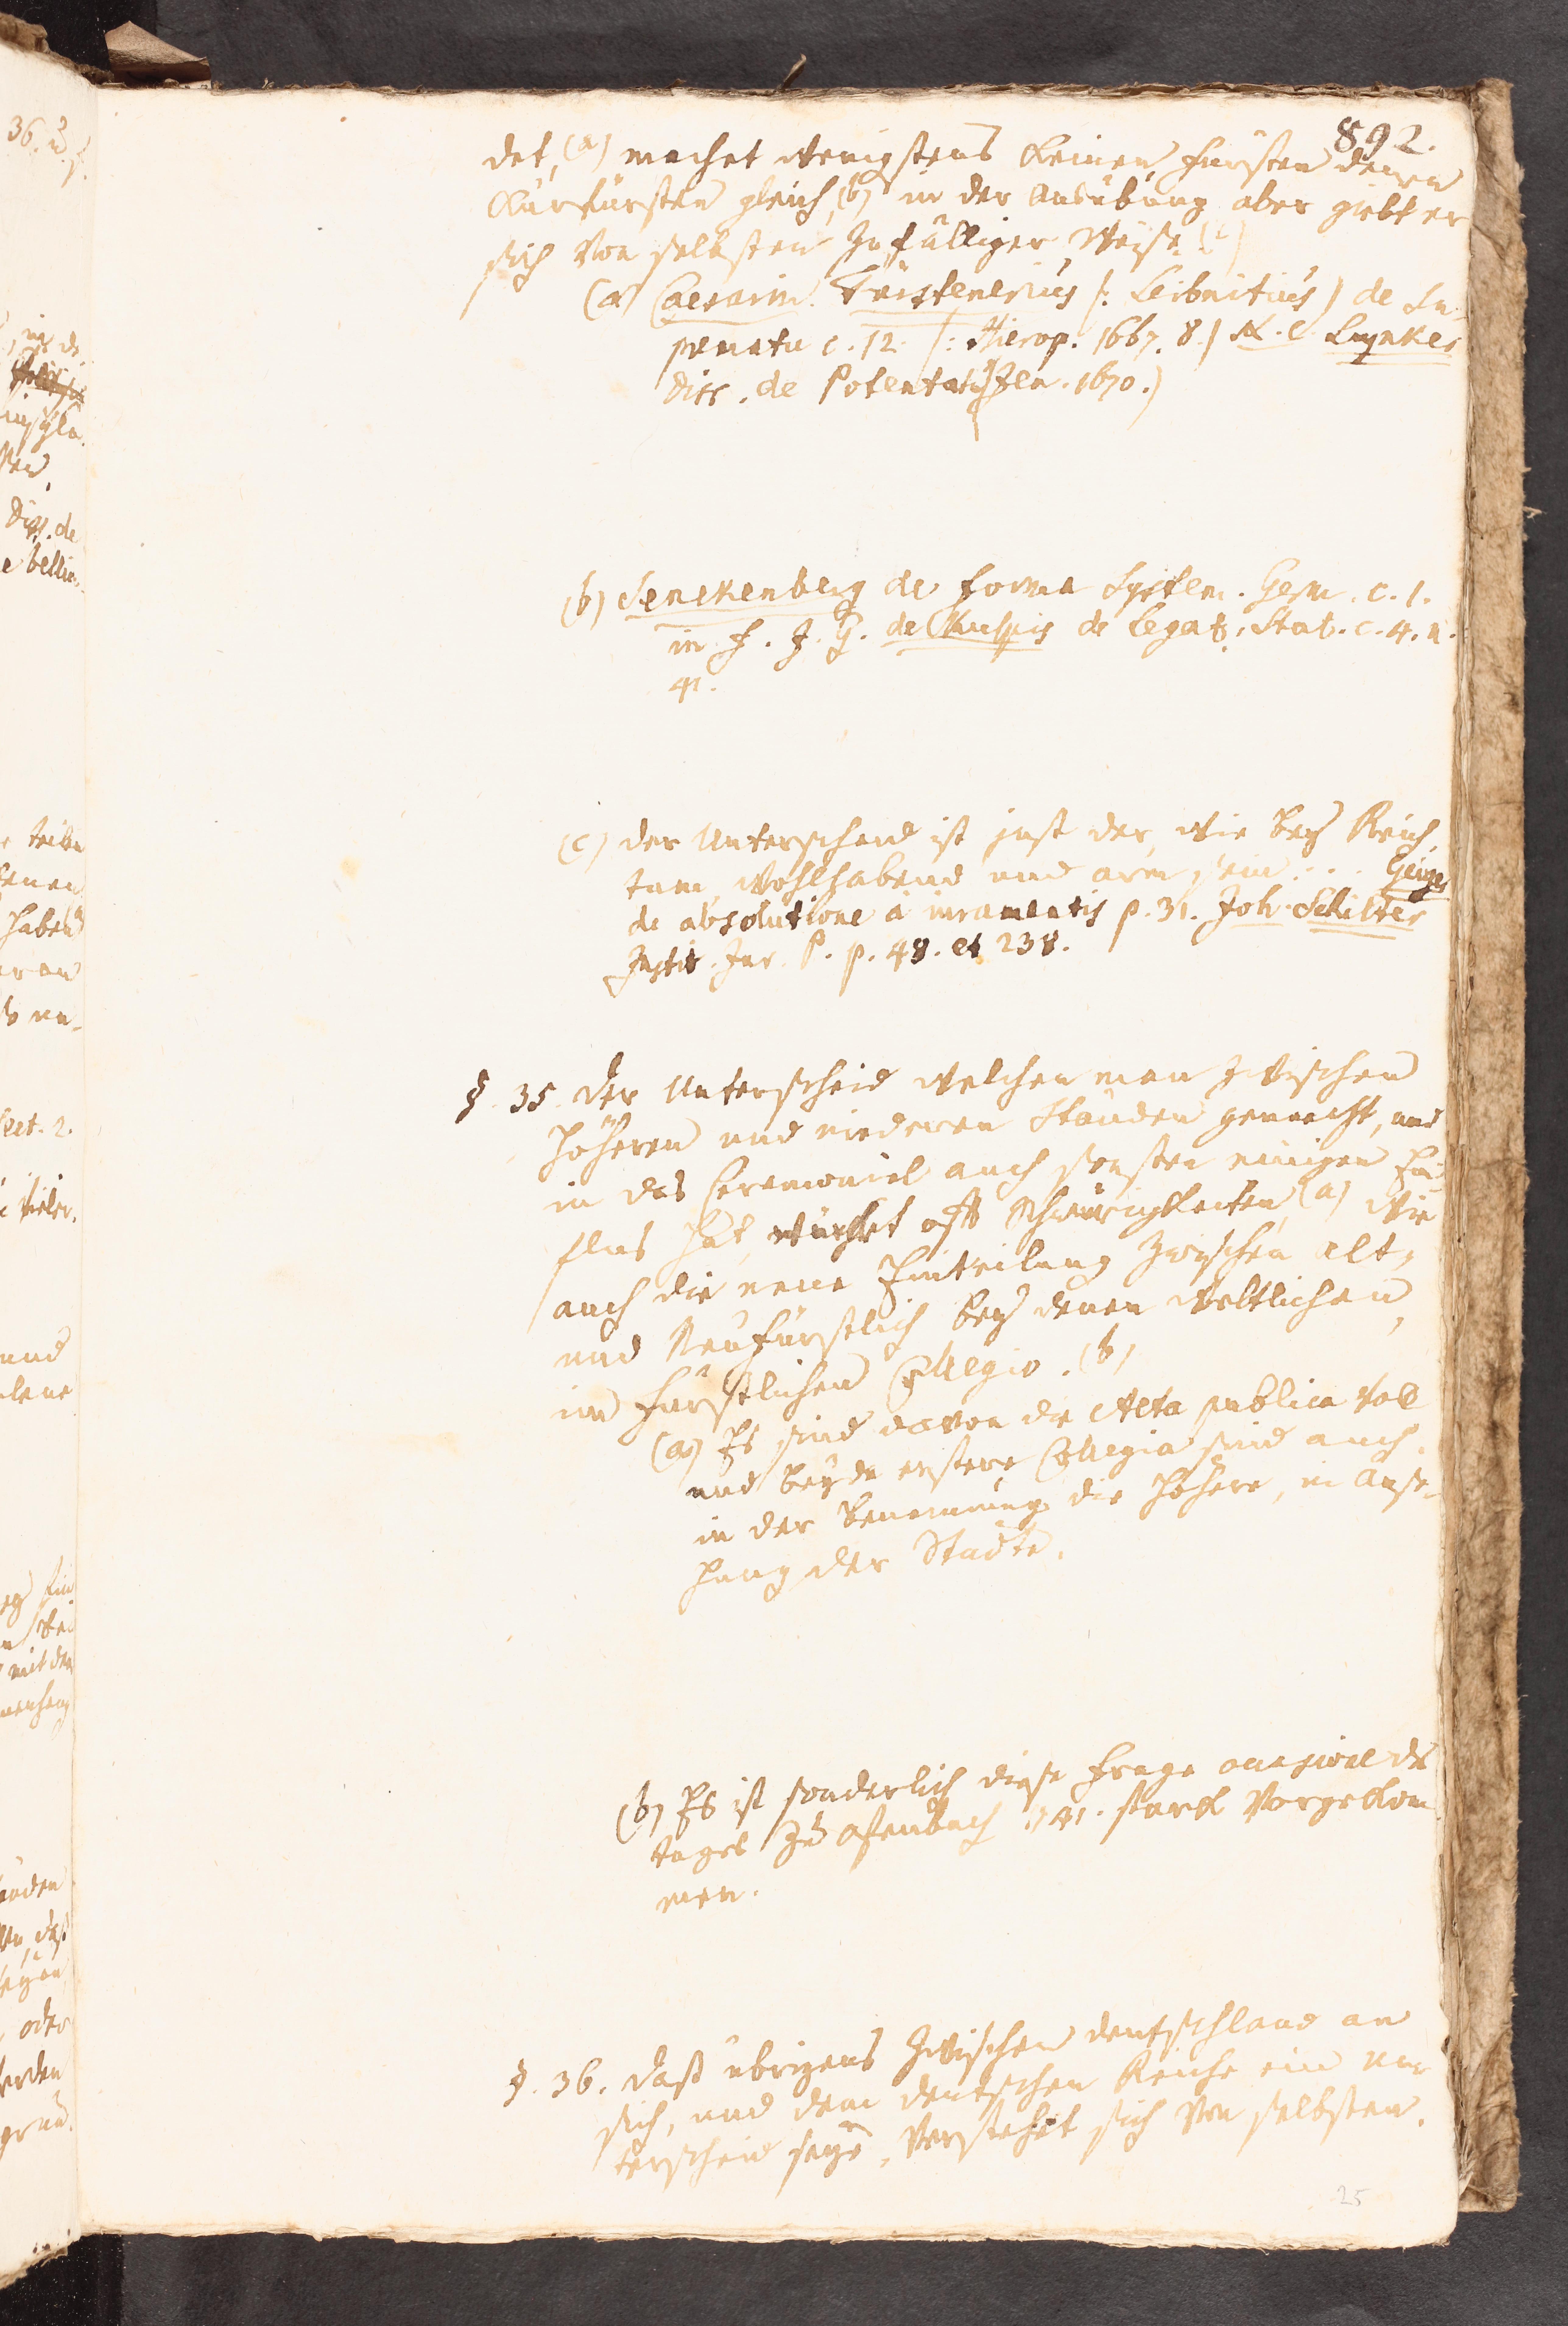 892.
det, (a) machet wenigstens keinen Fürsten denen
Kurfürsten gleich, (b) in der Ausübung aber giebt er
sich von selbsten zufälliger Weise. (c)
(a) Caesarin. Fürstenerius (: Leibnitius) de Su
prematu c. 12. (: Hierop. 1667. 8.) N. C. Lynker
Diss. de Potentatu Jen. 1670.)
(b) Senckenberg de forma System. Germ. c. 1.
in f. J. G. de Kulpis de Legat. Stat. c. 4. n.
41.
(c) der Unterscheid ist just der, wie bey Reich
tum, wohlhabend und arm sein... Geiger
de absolutione a iuramentis p. 31. Joh. Schilter
Instit. Jur. P. p. 48. et 238.
§. 35. Der Unterscheid welchen man zwischen
höheren und niederen Ständen gemacht, und
in das Ceremoniel auch sonsten einigen Ein
flus hat, würket oft Schwürigkeiten, (a) wie
auch die neue Einteilung zwischen alt,
und Neufürstlich bey denen weltlichen,
im Fürstlichen Collegio. (b)
(a) Es sind davon die Acta publica voll
und beyde erstere Collegia sind auch
in der Benennung die höhere, in Anse,
hung der Städte.
(b) Es ist sonderlich diese Frage des
tages zu Ofenbach 1741. stark vorgekom
men.
§. 36. Daß übrigens zwischen Deutschland an
sich, und dem deutschen Reiche ein Un
terscheid seye, verstehet sich von selbsten.
25